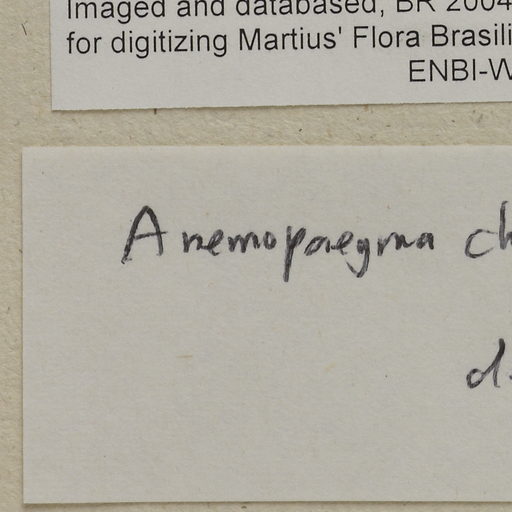 Imaged and databased, BR 2004
for digitizing Martius' Flora Brasili
ENBI-W
Anemopaegma ch
d.